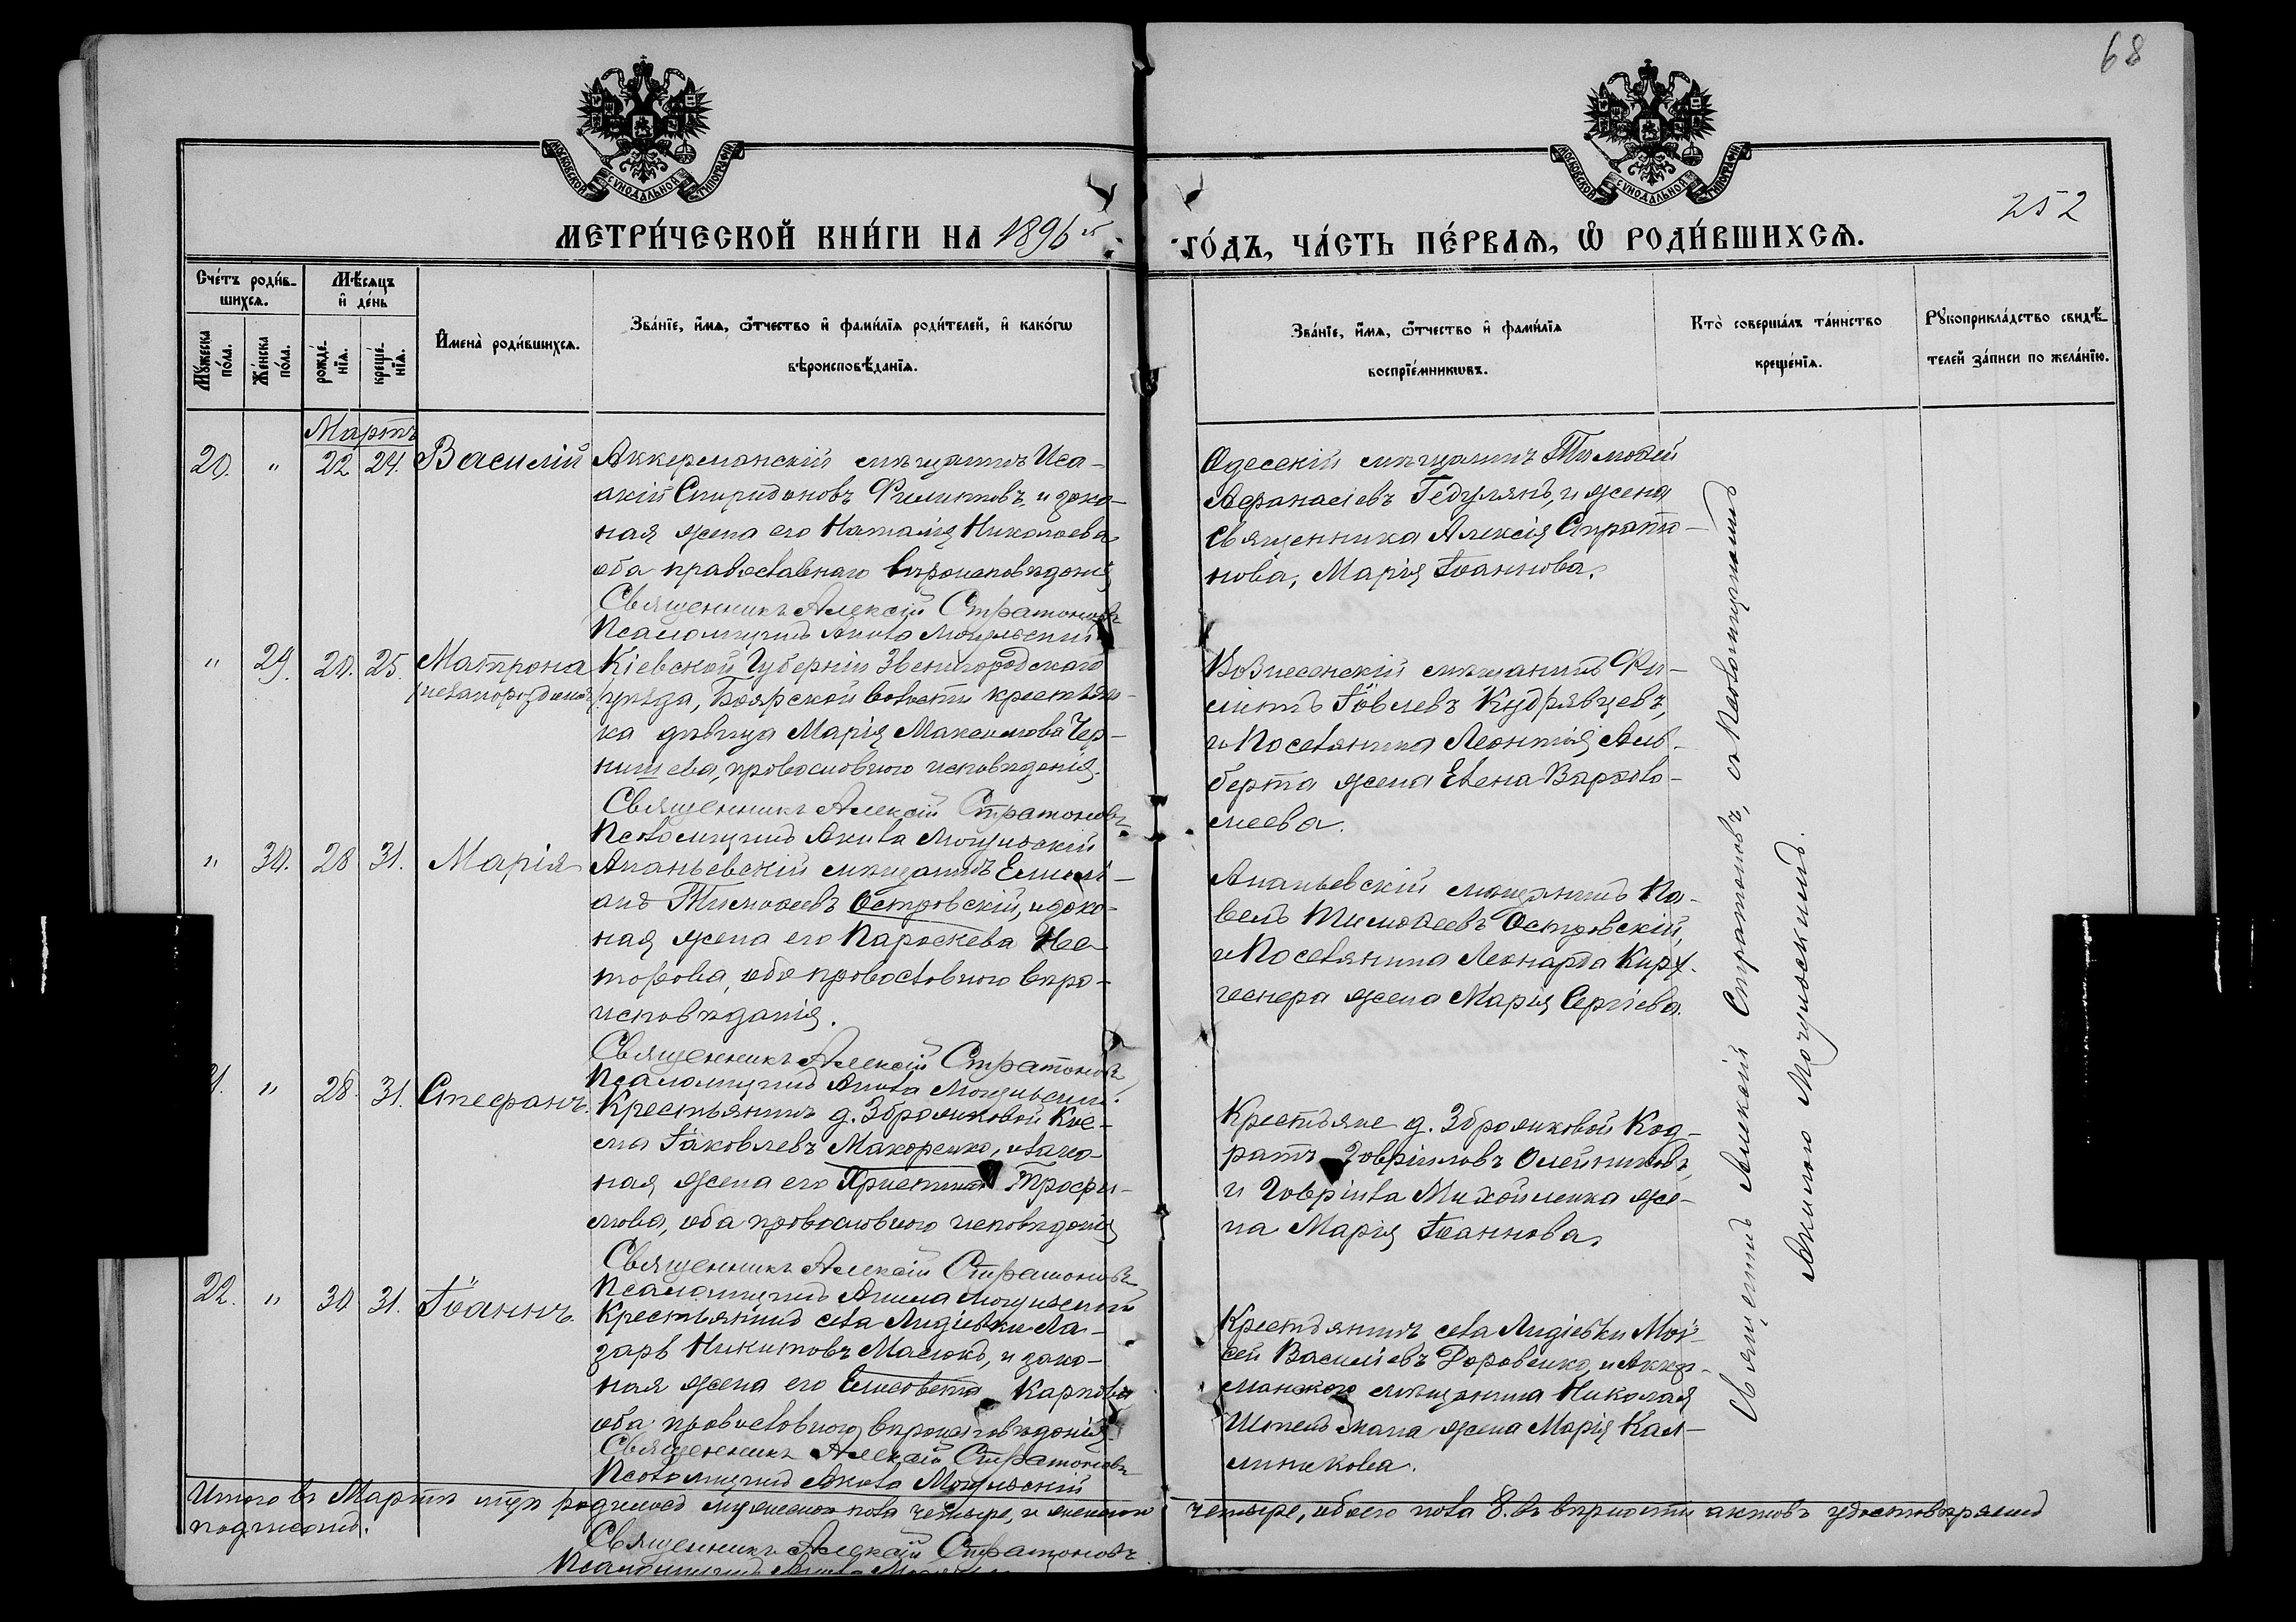 68
МОСКОВСКОЙ СѴНОДАЛЬНОЙ ТИПОГРАФІИ
МОСКОВСКОЙ СѴНОДАЛЬНОЙ ТИПОГРАФІИ
252
МЕТРИ́ЧЕСКОЙ КНИ́ГИ НА 1896й
ГО́ДЪ, ЧА́СТЬ ПЕ́РВАЯ, Ѡ҆ РОДИ́ВШИХСѦ.
Сче́тъ роди́в-
шихсѧ.
Мѣ́сѧцъ
и҆ де́нь
Мꙋ́жеска
по́ла.
Же́нска
по́ла.
рожде́-
нїѧ.
креще́-
нїѧ.
И҆мена̀ роди́вшихсѧ.
Зва́нїе, и҆́мѧ, ѻ҆́тчество и҆ фами́лїѧ роди́телей, и҆ како́гѡ
вѣроисповѣ́данїѧ.
Зва́нїе, и҆́мѧ, ѻ҆́тчество и҆ фами́лїѧ
воспрїе́мникѡвъ.
Кто̀ соверша́лъ та́инство
креще́нїѧ.
Рꙋкоприкла́дство свидѣ́-
телей за́писи по жела́нїю.
Мартъ
20. " 22 24. Василій
Аккерманскій мѣщанинъ Иса-
акій Спиридоновъ Филиповъ, и зако-
ная жена его Наталія Николаева
оба православнаго вѣроисповѣданія
Священникъ Алексій Стратоновъ
Псаломщикъ Акила Могульскій
Одесскій мѣщанинъ Тимоѳей
Аѳанасіевъ Гедулянъ, и жена
священника Алексія Страто-
нова, Марія Іоаннова.
" 29. 20. 25. Матрона
(незаконорожденая)
Кіевской Губерніи Звенигородскаго
уѣзда, Боярской волости крестьян-
ка дѣвица Марія Максимова Чер-
нишева, православного исповѣданія.
Священникъ Алексій Стратоновъ
Псаломщикъ Акила Могульскій
Вознесенскій мѣщанинъ Фи-
липъ Іовлевъ Кудрявцевъ,
и Поселянина Леонтія Аль-
берта жена Елена Варѳоло-
меева.
" 30. 28 31. Марія
Ананьевскій мѣщанинъ Емилі-
анъ Тимоѳеевъ Островскій, и зако-
ная жена его Параскева Не-
торова, оба православного вѣро-
исповѣданія.
Священникъ Алексій Стратоновъ
Псаломщикъ Акила Могульскій.
Ананьевскій мѣщанинъ Па-
велъ Тимоѳеевъ Островскій,
и Поселянина Леонарда Кирх-
геснера жена Марія Сергіева.
1. " 28. 31. Стефанъ.
Крестьянинъ д. Збрашковой Кос-
ма Іаковлевъ Макоренко, и зако-
ная жена его Христина Трофи-
мова, оба православного исповѣданія
Священникъ Алексій Стратоновъ
Псаломщикъ Акила Могульскій
Крестьяне д. Збрашковой Код-
ратъ Говріиловъ Олейниковъ,
и Говріила Михойленка же-
на Марія Іоаннова.
22. " 30 31. Іоаннъ.
Крестьянинъ села Лидіевки Ла-
зарь Никитовъ Маслокъ, и зако-
ная жена его Елисавета Карпова
оба православного вѣроисповѣданія.
Священникъ Алексій Стратоновъ
Псаломщикъ Акила Могульскій
Крестьянинъ села Лидіевки Мой-
сей Василіевъ Доровенко, и Аккер-
манского мѣщанина Николая
Штельмаха жена Марія Кал-
линикова.
Священникъ Алексій Стратоновъ, и Псаломщикъ
Акила Могульскій.
Итого въ Мартѣ м-цѣ родилось мужеска пола четыре, и женска четыре, обоего пола 8. въ вѣрности актовъ удостовѣряемъ
подписомъ.
Священникъ Алексій Стратоновъ
Псаломщикъ Акила